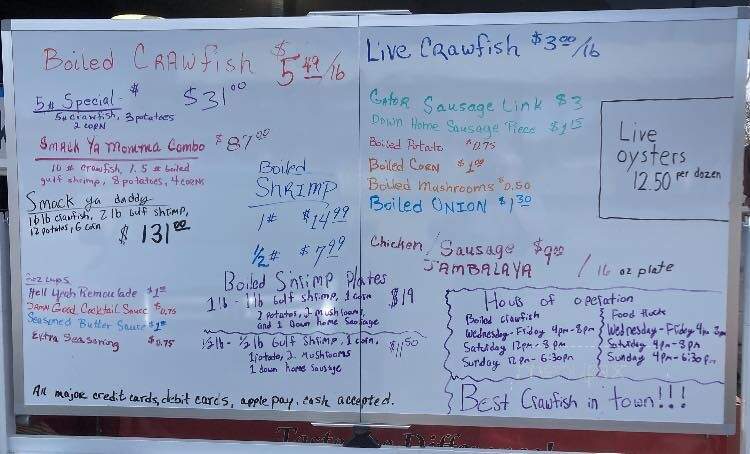 Boiled Crawfish $5.49/lb
5# Special $ $31.00
5# crawfish, 3 potatoes
2 corn
Smack Ya Momma Combo $87.00
10 # crawfish, 1.5 # boiled
gulf shrimp, 8 potatoes, 4 corns
Smack ya daddy
16 lb crawfish, 2 lb Gulf shrimp,
12 potatos, 6 corn
$ 131.00
2oz cups
Hell Yeah Remoulade
Damn Good Cocktail Sauce $0.75
Seasoned Butter Sauce
Extra Seasoning $0.75
Boiled
SHRIMP
1# $14.99
1/2# $7.99
Boiled Shrimp Plates
1 lb - 1 lb Gulf shrimp, 1 corn $19
2 potatoes, 2 mushrooms,
and 1 Down home Sausage
1/2 lb - 1/2 lb Gulf Shrimp, 1 corn, $11.50
1 potato, 2 mushrooms
1 down home sausage
All major credit cards, debit cards, apple pay, cash accepted.
Live Crawfish $3.00/lb
Gator Sausage Link $3
Down Home Sausage Piece
Boiled Potato $0.75
Boiled Corn
Boiled Mushrooms $0.50
Boiled UNION $1.30
Live
oysters
12.50 per dozen
Chicken/Sausage $9.00
JAMBALAYA / 16 oz plate
Hours of operation
Boiled Crawfish
Wednesday - Friday 4pm - 8pm
Saturday 12pm - 8pm
Sunday 12pm - 6:30pm
Food Truck
Wednesday - Friday 4pm
Saturday 4pm - 8pm
Sunday 4pm - 6:30pm
Best Crawfish in town!!!